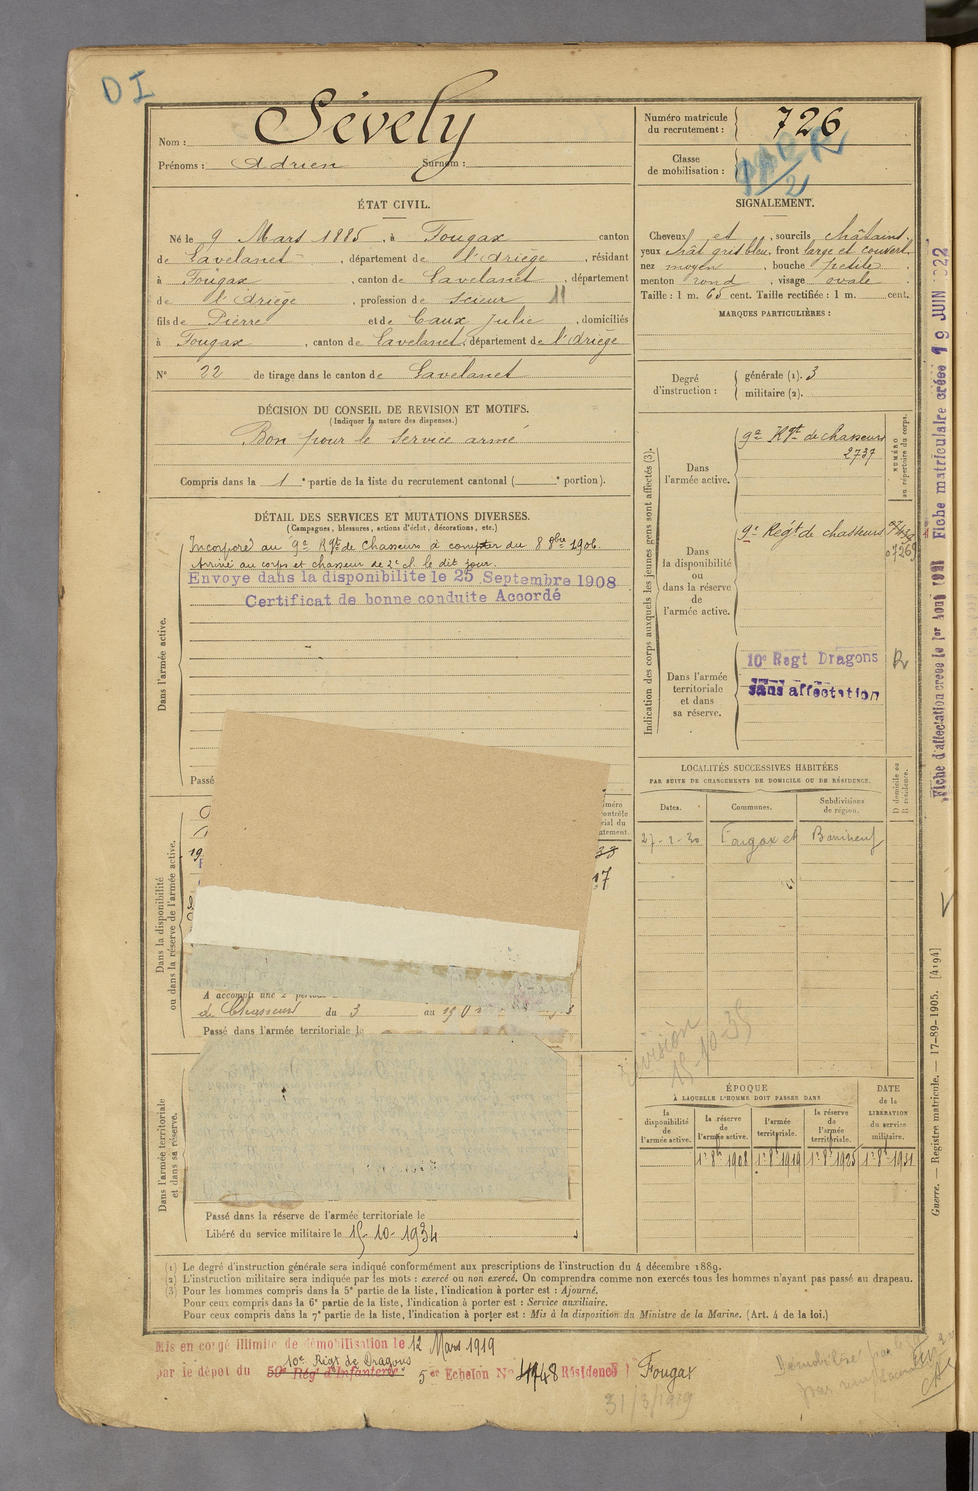 DI
Nom : Sévely
Prénoms : Adrien Surnom :
Numéro matricule du recrutement : 726
Classe de mobilisation :
ÉTAT CIVIL.
Né le 9 Mars 1885, à Fougax canton
de Lavelanet, département de l'Ariège, résidant
à Fougax, canton de Lavelanet, département
de l'Ariège, profession de scieur 11
fils de Pierre et de Caux Julie, domiciliés
à Fougax, canton de Lavelanet, département de l'Ariège
N° 22 de tirage dans le canton de Lavelanet
SIGNALEMENT.
Cheveux et, sourcils châtains,
yeux chât gris bleu, front large et couvert,
nez moyen, bouche petite,
menton rond, visage ovale.
Taille : 1 m. 65 cent. Taille rectifiée : 1 m. cent.
MARQUES PARTICULIÈRES :
Degré d'instruction : générale (1). 3
militaire (2).
DÉCISION DU CONSEIL DE REVISION ET MOTIFS.
(Indiquer la nature des dispenses.)
Bon pour le service armé
Compris dans la 1e partie de la liste du recrutement cantonal ( e portion).
DÉTAIL DES SERVICES ET MUTATIONS DIVERSES.
(Campagnes, blessures, actions d'éclat, décorations, etc.)
Dans l'armée active.
Incorporé au 9e Rgt de Chasseurs à compter du 8 8bre 1906.
Arrivé au corps et chasseur de 2e cl. le dit jour.
Envoyé dans la disponibilité le 25 Septembre 1908
Certificat de bonne conduite Accordé
Passé
Indication des corps auxquels les jeunes gens sont affectés (3).
Dans l'armée active.
9e Rgt de chasseurs
2737
NUMÉRO au répertoire du corps.
Dans la disponibilité ou dans la réserve de l'armée active.
9e Regt de chasseurs
Dans l'armée territoriale et dans sa réserve.
10e Regt Dragons
sans affectation
R
LOCALITÉS SUCCESSIVES HABITÉES
PAR SUITE DE CHANGEMENTS DE DOMICILE OU DE RÉSIDENCE.
D domicile ou R résidence.
Dates. Communes. Subdivisions de région.
27-2-30 Fougax et Barrineuf
Dans la disponibilité ou dans la réserve de l'armée active.
de Chasseurs du 3 au
Passé dans l'armée territoriale le
révision
15-10-35
Dans l'armée territoriale et dans sa réserve.
Passé dans la réserve de l'armée territoriale le
Libéré du service militaire le 15-10-1934
ÉPOQUE
À LAQUELLE L'HOMME DOIT PASSER DANS
DATE de la LIBÉRATION du service militaire.
la disponibilité de l'armée active. la réserve de l'armée active. l'armée territoriale. la réserve de l'armée territoriale.
1e 8bre 1908 1e 8bre 1919 1e 8bre 1925 1e 8bre 1931
(1) Le degré d'instruction générale sera indiqué conformément aux prescriptions de l'instruction du 4 décembre 1889.
(2) L'instruction militaire sera indiquée par les mots : exercé ou non exercé. On comprendra comme non exercés tous les hommes n'ayant pas passé au drapeau.
(3) Pour les hommes compris dans la 5e partie de la liste, l'indication à porter est : Ajourné.
Pour ceux compris dans la 6e partie de la liste, l'indication à porter est : Service auxiliaire.
Pour ceux compris dans la 7e partie de la liste, l'indication à porter est : Mis à la disposition du Ministre de la Marine. (Art. 4 de la loi.)
Mis en congé illimité de démobilisation le 12 Mars 1919
10e Rigt de Dragons
par le dépôt du 59e Rég d'Infanterie 5er Echelon N° 4748 Résidence : Fougax
31/3/1919
Fiche d'affectation créée le 1er Août 1921 Fiche matriculaire créée 19 JUIN 1922
Guerre. — Registre matricule. — 17-89-1905. [4194]